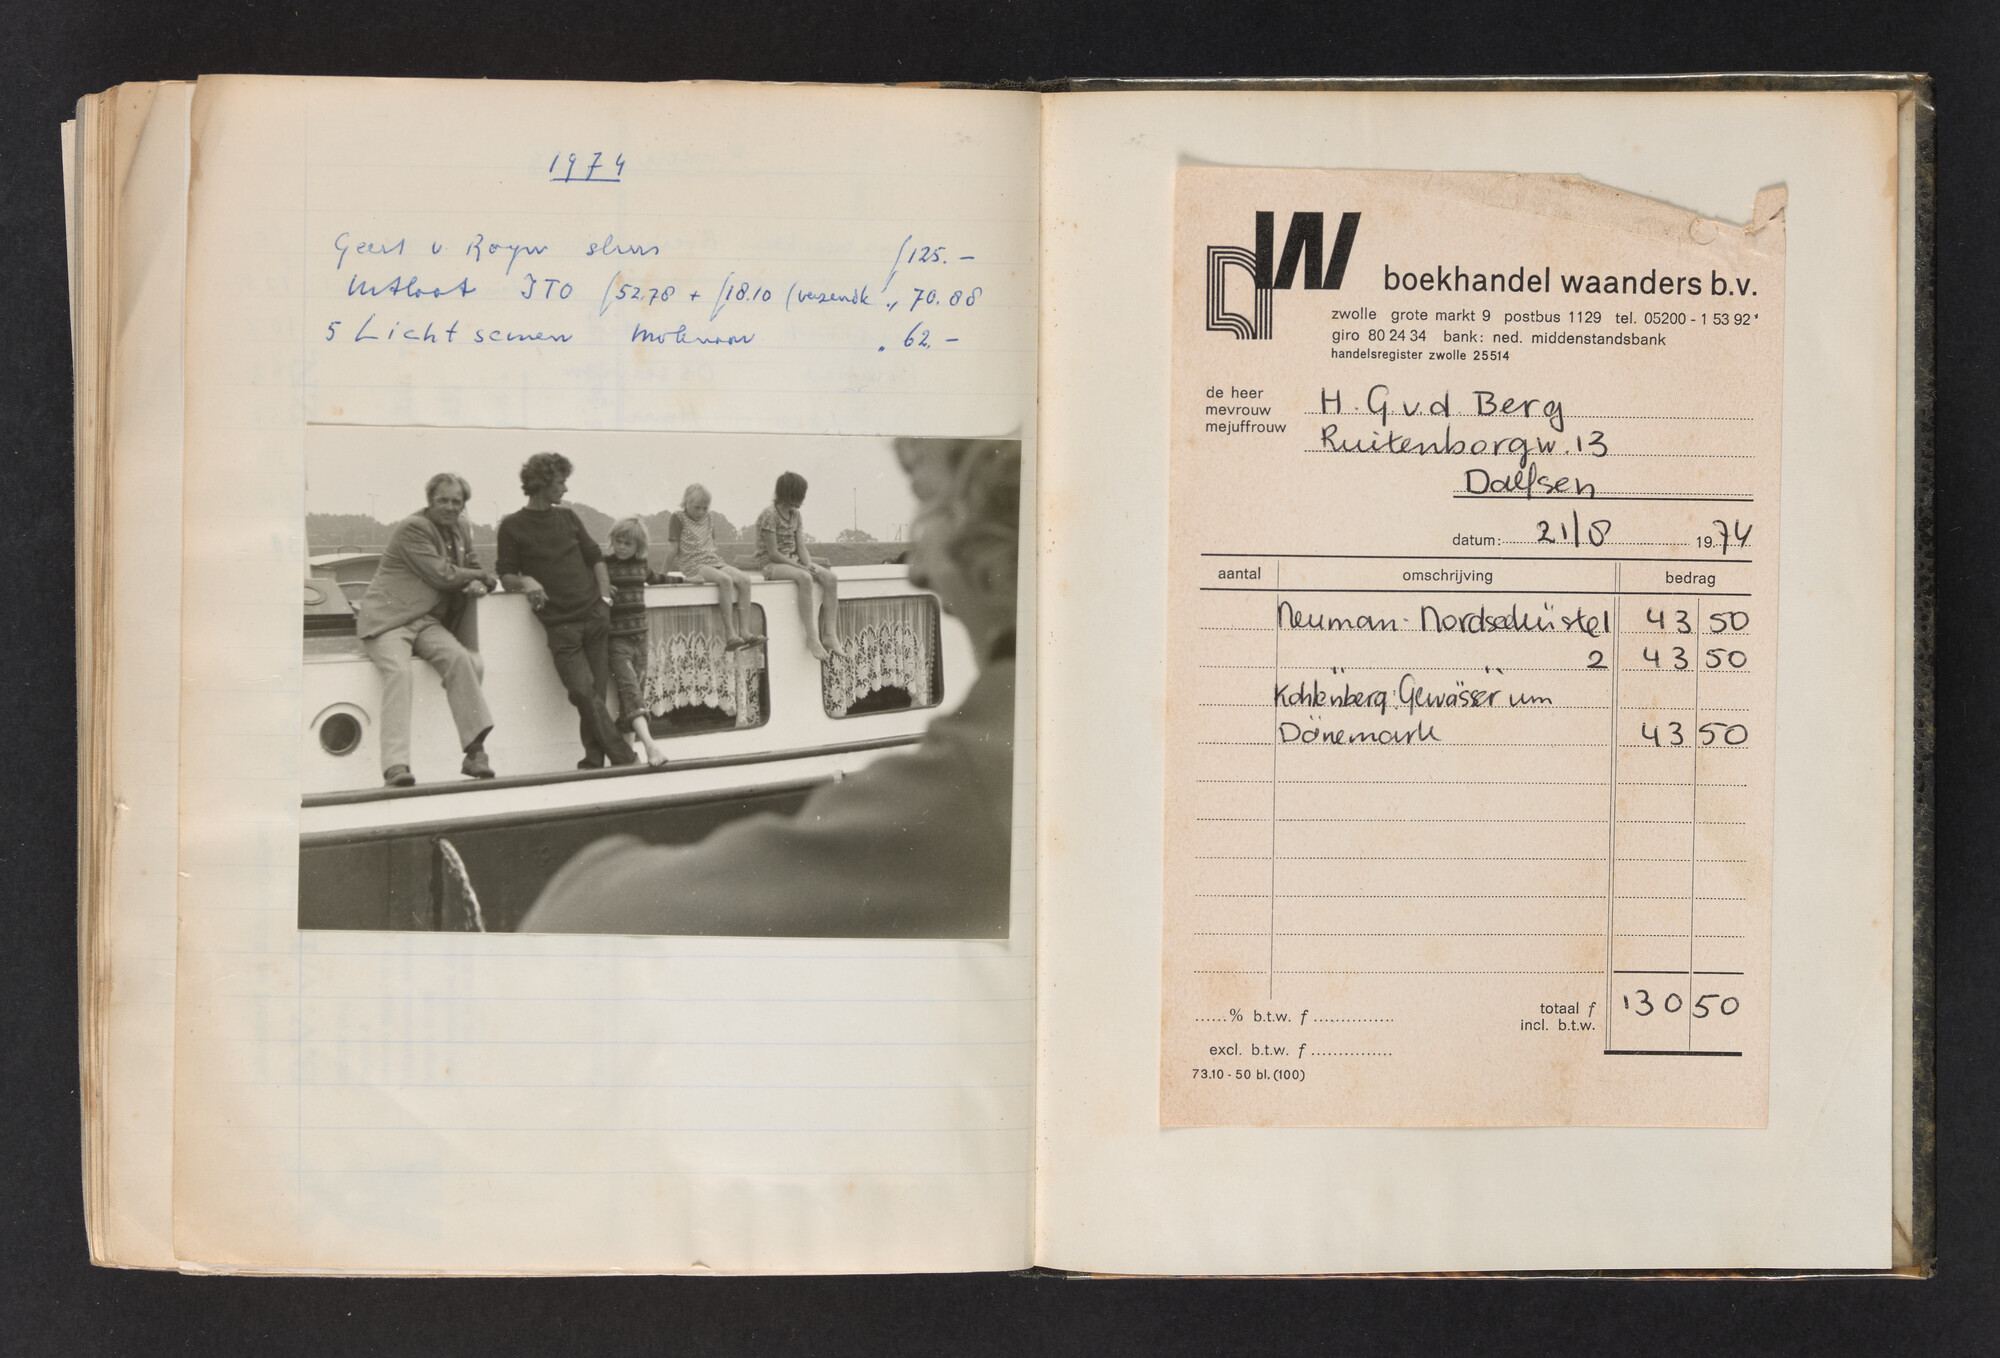 1974
Geert v Royen ƒ125.-
ITO ƒ52.78 + ƒ18.10 (verzendk ,, 70.88
5 Licht seinen Molenaar ,, 62.-
W
boekhandel waanders b.v.
zwolle grote markt 9 postbus 1129 tel. 05200 - 1 53 92*
giro 80 24 34 bank: ned. middenstandsbank
handelsregister zwolle 25514
de heer
mevrouw
mejuffrouw
H. G v.d. Berg
Ruitenborgw. 13
Dalfsen
datum: 21/8 1974
aantal omschrijving bedrag
Neuman: Nordseeküste 1 43 50
,, ,, 2 43 50
Kohlenberg: Gewässer um
Dänemark 43 50
totaal ƒ 130 50
incl. b.t.w.
......% b.t.w. ƒ ...............
excl. b.t.w. ƒ ...............
73.10 - 50 bl. (100)